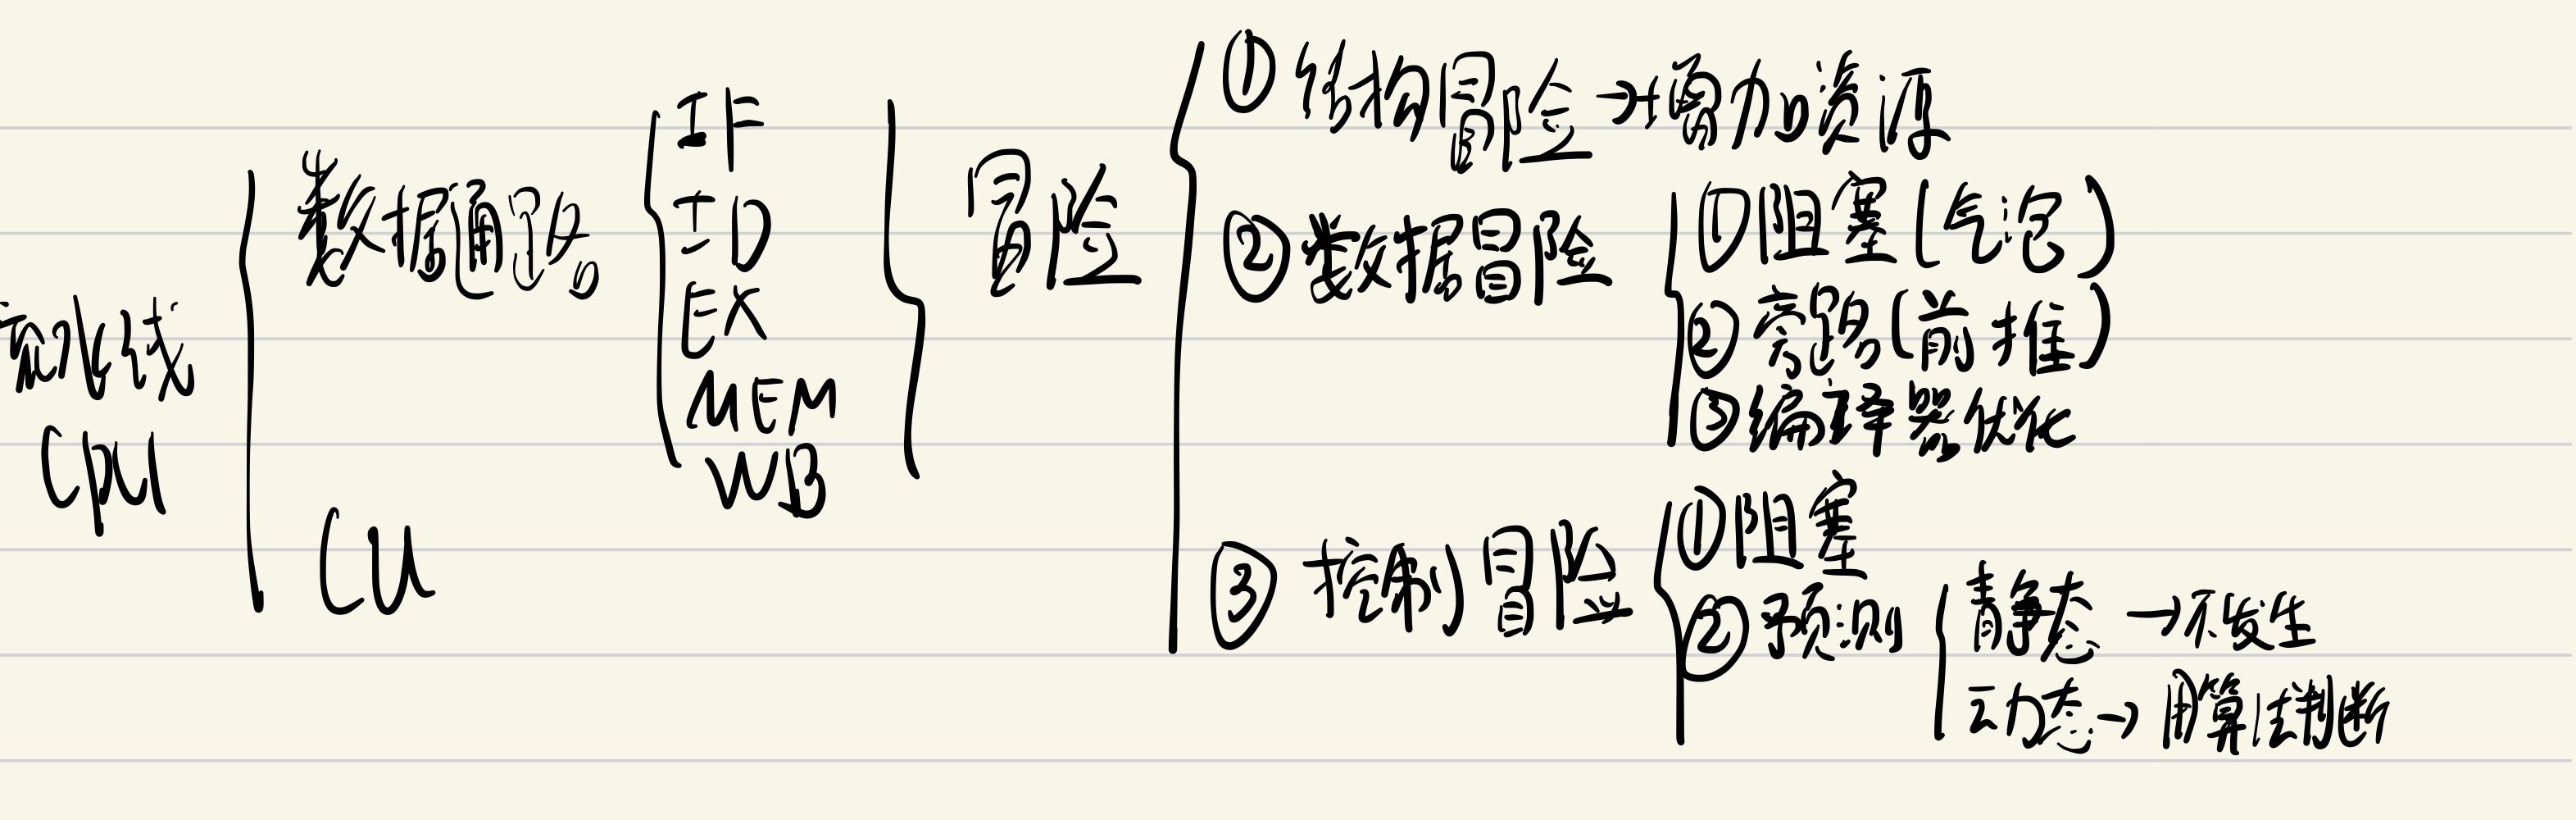 流水线
CPU
数据通路
CU
IF
ID
EX
MEM
WB
冒险
① 结构冒险→增加资源
② 数据冒险
①阻塞(气泡)
②旁路(前推)
③编译器优化
③ 控制冒险
①阻塞
②预测
静态→不发生
动态→用算法判断